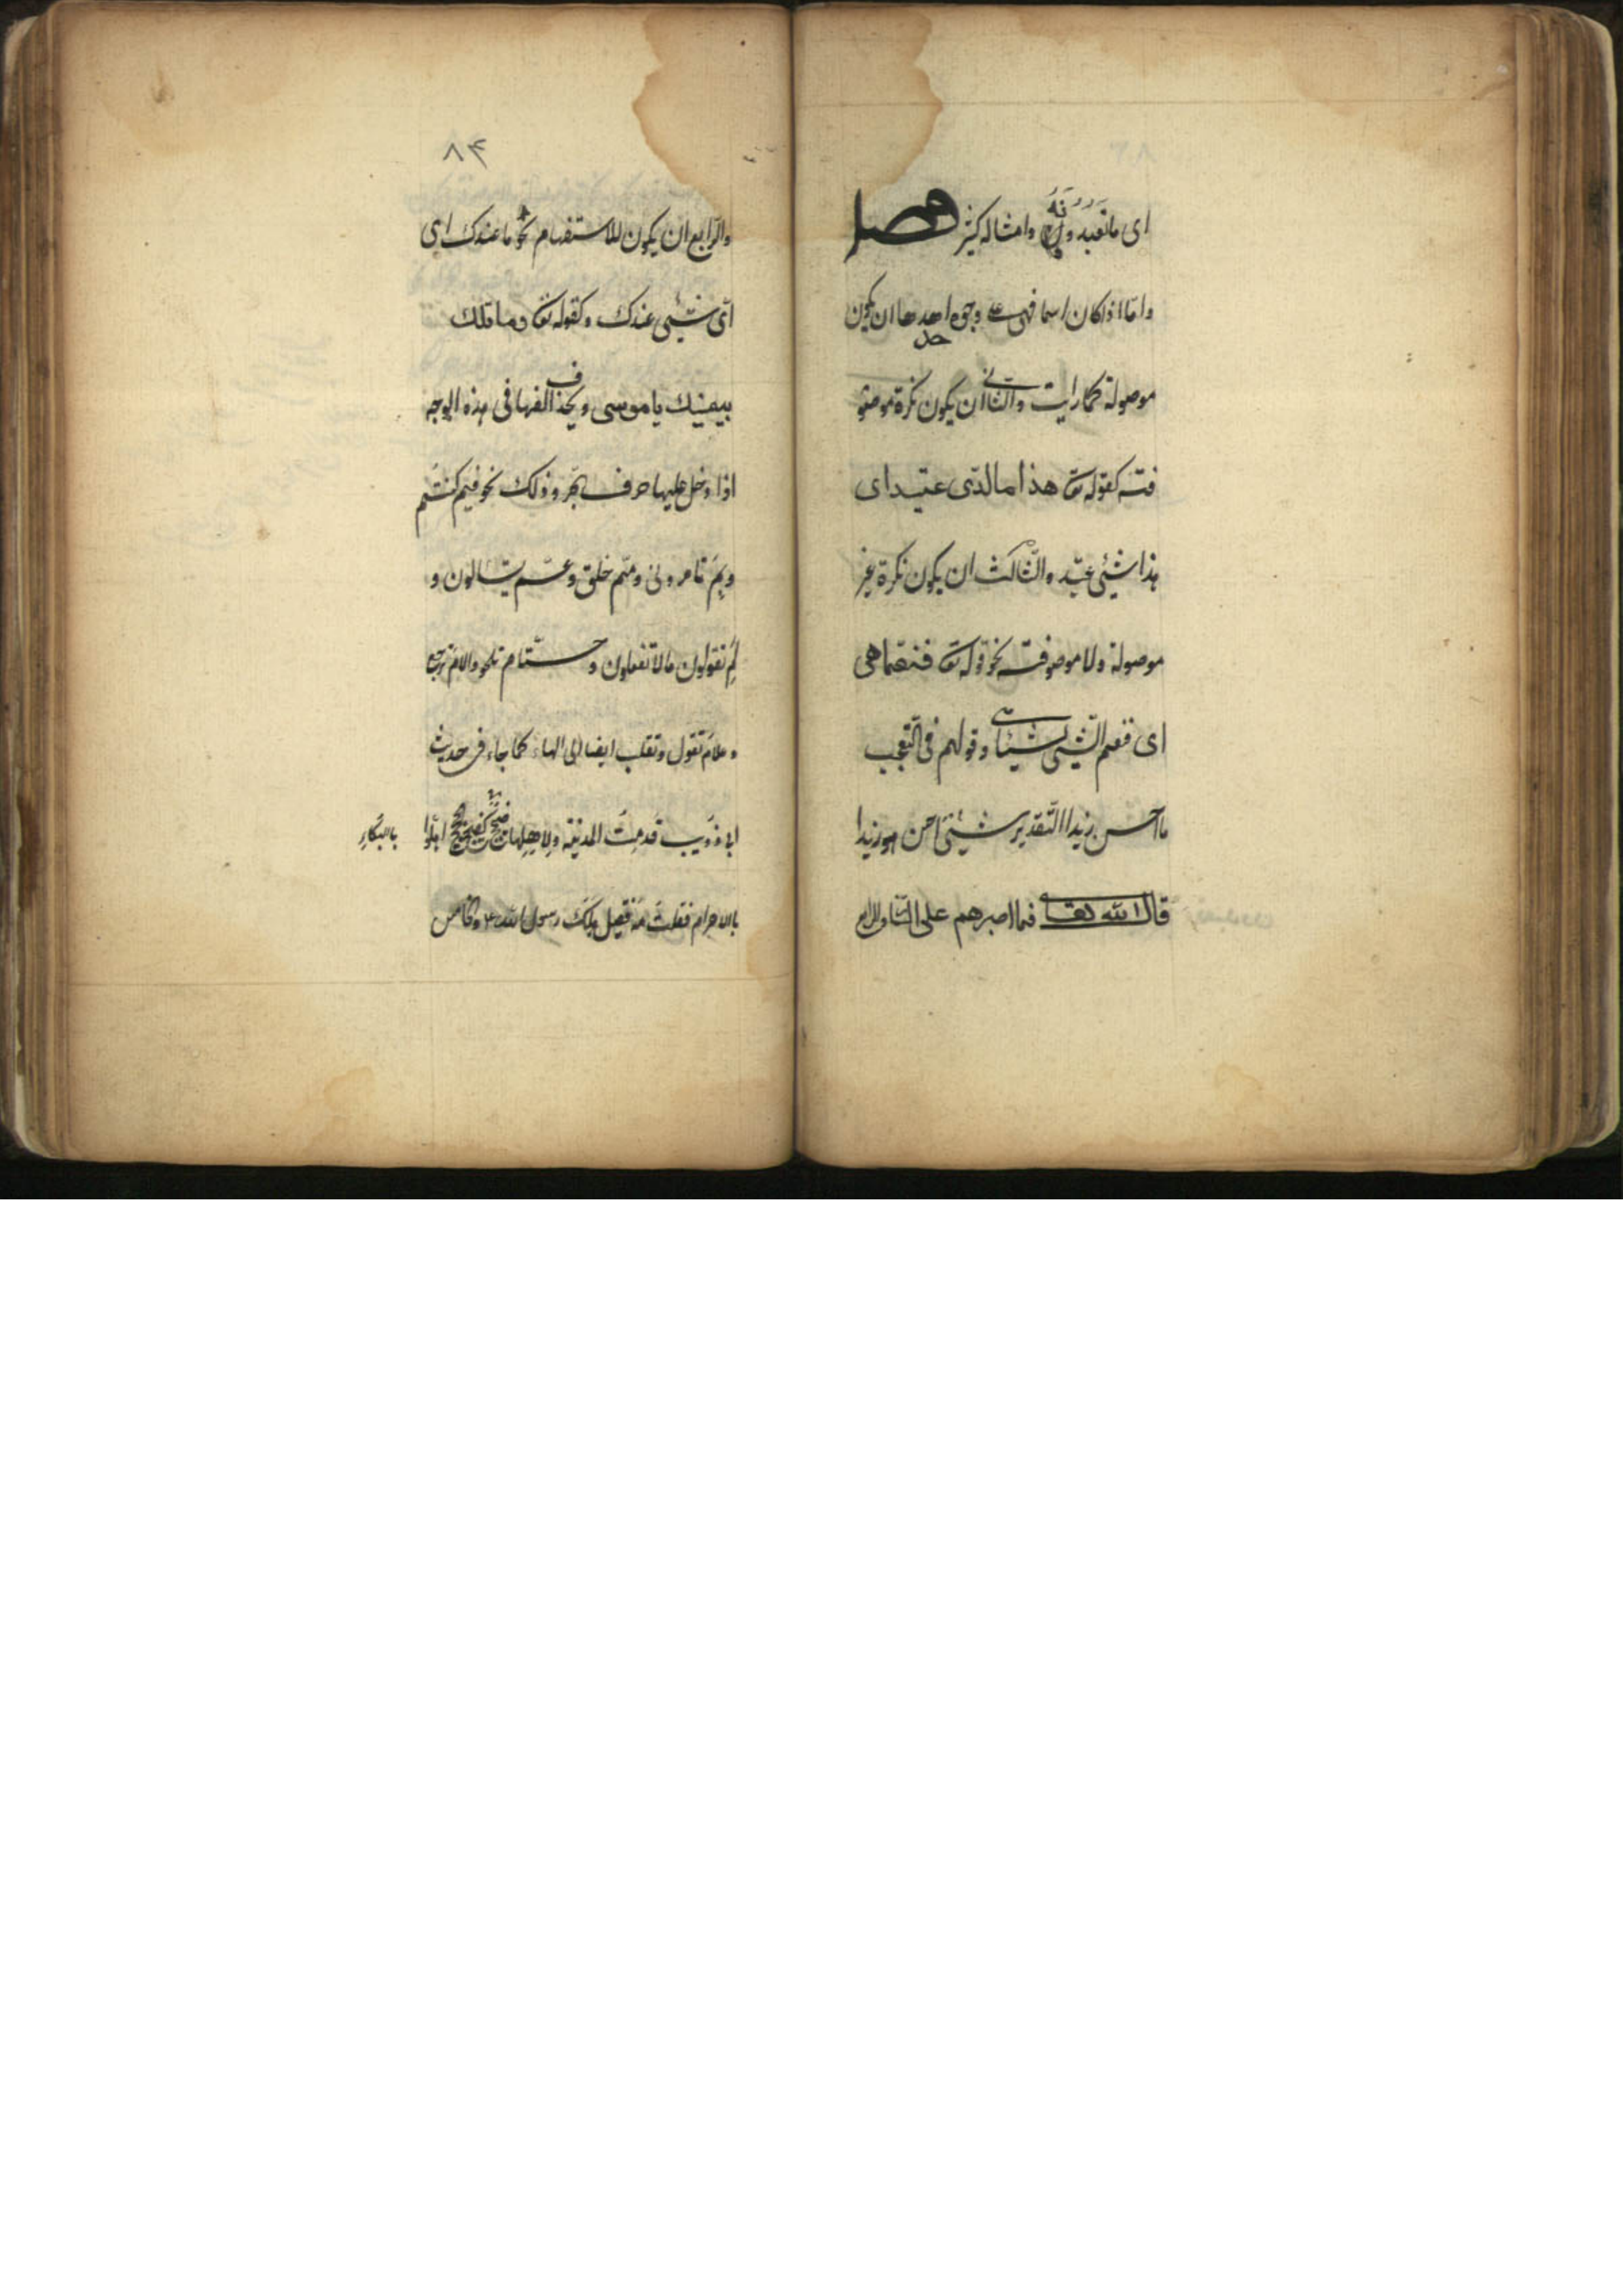 ای ما تعبدونه وامثاله کثیر فصل
واما اذا کان اسما فهی علی وجوه احدها ان یکون
موصولة کما رایت والثانی ان یکون نکرة موصو
فته کقوله تع هذا ما لدی عتید ای
هذا شیئی عتید والثالث ان یکون نکرة غیر
موصولة ولا موصوفته نحو قوله تع فنعما هی
ای فنعم الشیئی شیئا وقولهم فی التعجب
ما احسن زیدا التقدیر شیئی احسن هو زیدا
قال الله تعالی فما اصبرهم علی النار
۸۴
والرابع ان یکون للاستفهام نحو ما عندک ای
ای شیئی عندک وکقوله تع وما تلک
بیمینک یا موسی ویحذف الفها فی هذه الوجه
اذا دخل علیها حرف الجر وذلک نحو فیم کنتم
وبم تامرونی ومم خلق وعم یتسالون و
لم تقولون ما لا تفعلون وحتام تلهو والام ترجع
وعلام تقول وتقلب ایضا الی الهاء کما جاء فی حدیث
ابی ذویب قدمت المدینة ولاهلها ضجیج کضجیج اهلوا بالبکاء
بالاحرام فقلت مه فقیل هلک رسول الله والخامس